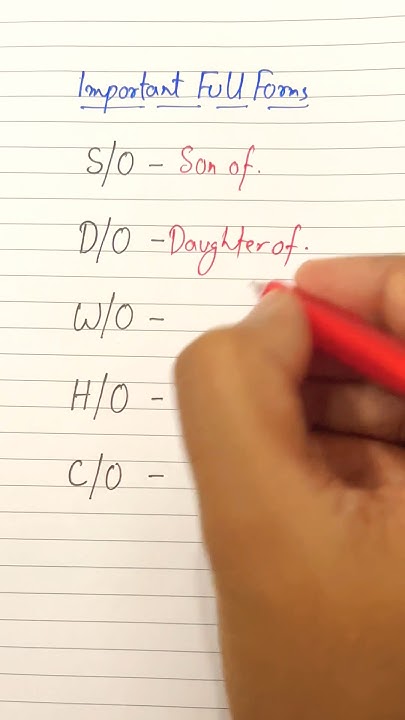 Important Full Forms
S/O - Son of.
D/O - Daughter of.
W/O -
H/O -
C/O -